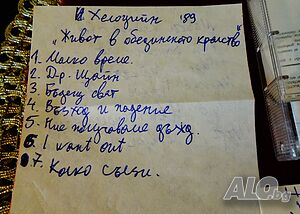 Хелоуийн '89
„Живот в обединеното кралство"
1. Малко време.
2. Др. Щайн
3. Бъдещ свят
4. Възход и падение
5. Ние получаваме дъжд.
6. I want out
7. Колко сълзи.
ALO.bg